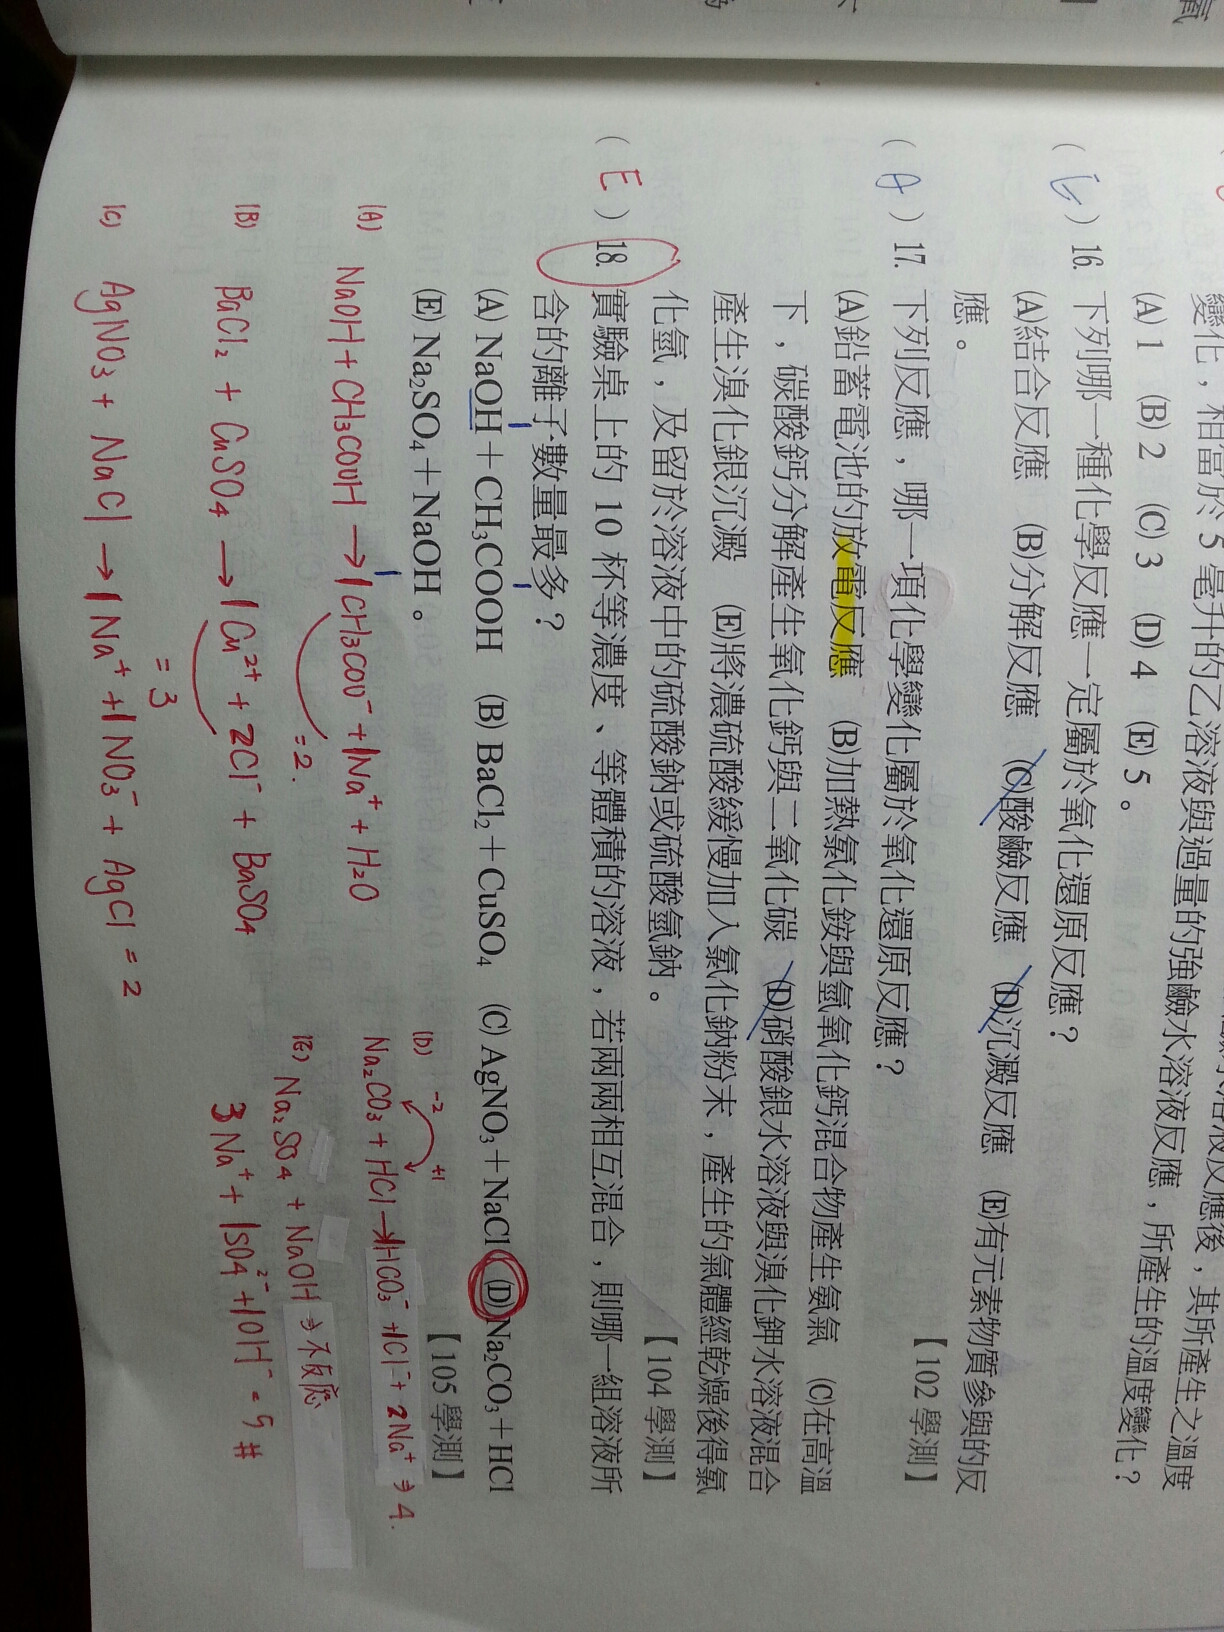 變化，相當於 5 毫升的乙溶液與過量的強鹼水溶液反應，所產生的溫度變化？
(A) 1 (B) 2 (C) 3 (D) 4 (E) 5。
16. 下列哪一種化學反應一定屬於氧化還原反應？
(A)結合反應 (B)分解反應 (C)酸鹼反應 (D)沉澱反應 (E)有元素物質參與的反
應。 【102 學測】
( A ) 17. 下列反應，哪一項化學變化屬於氧化還原反應？
(A)鉛蓄電池的放電反應 (B)加熱氯化銨與氫氧化鈣混合物產生氨氣 (C)在高溫
下，碳酸鈣分解產生氧化鈣與二氧化碳 (D)硝酸銀水溶液與溴化鉀水溶液混合
產生溴化銀沉澱 (E)將濃硫酸緩慢加入氯化鈉粉末，產生的氣體經乾燥後得氯
化氫，及留於溶液中的硫酸鈉或硫酸氫鈉。 【104 學測】
( E ) 18. 實驗桌上的 10 杯等濃度、等體積的溶液，若兩兩相互混合，則哪一組溶液所
含的離子數量最多？
(A) NaOH＋CH₃COOH (B) BaCl₂＋CuSO₄ (C) AgNO₃＋NaCl (D) Na₂CO₃＋HCl
(E) Na₂SO₄＋NaOH。 【105 學測】
(A) NaOH + CH₃COOH → 1CH₃COO⁻ + 1Na⁺ + H₂O
= 2.
(B) BaCl₂ + CuSO₄ → 1Cu²⁺ + 2Cl⁻ + BaSO₄
= 3
(C) AgNO₃ + NaCl → 1Na⁺ + 1NO₃⁻ + AgCl = 2
(D) -2 +1
Na₂CO₃ + HCl → 1HCO₃⁻ + 1Cl⁻ + 2Na⁺ ⇒ 4.
(E) Na₂SO₄ + NaOH ⇒ 不反應
3Na⁺ + 1SO₄²⁻ + 1OH⁻ = 5 #